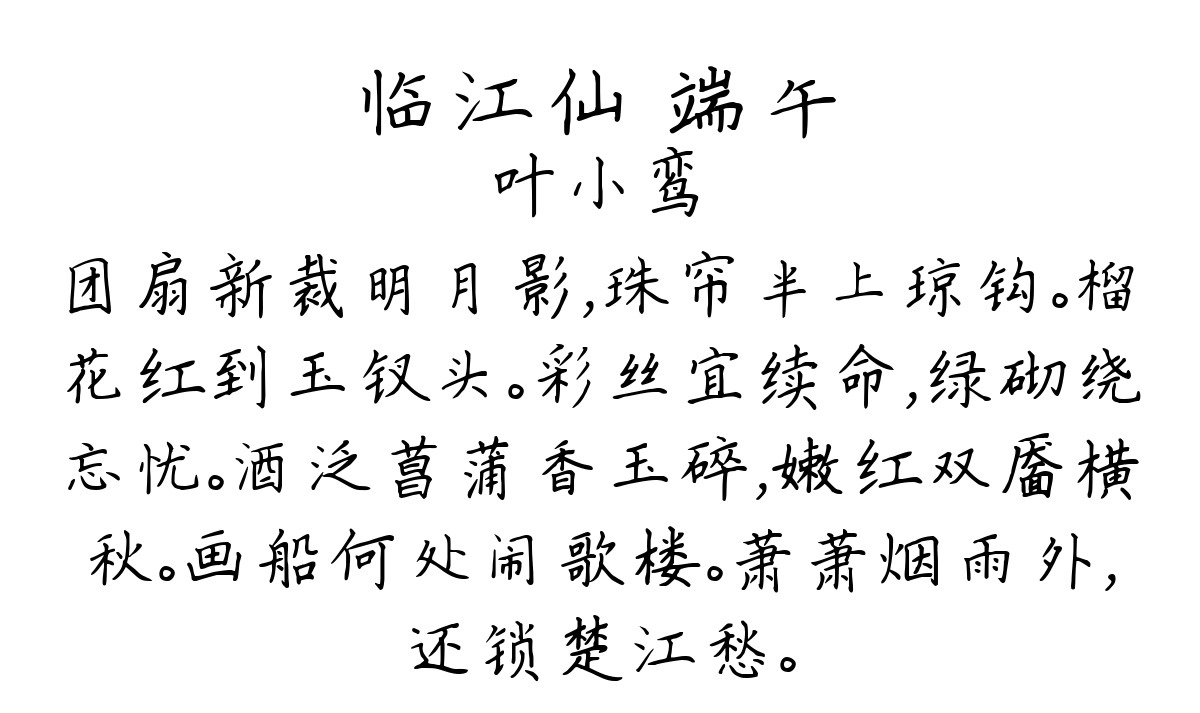 临江仙 端午
叶小鸾
团扇新裁明月影,珠帘半上琼钩。榴
花红到玉钗头。彩丝宜续命,绿砌绕
忘忧。酒泛菖蒲香玉碎,嫩红双靥横
秋。画船何处闹歌楼。萧萧烟雨外,
还锁楚江愁。